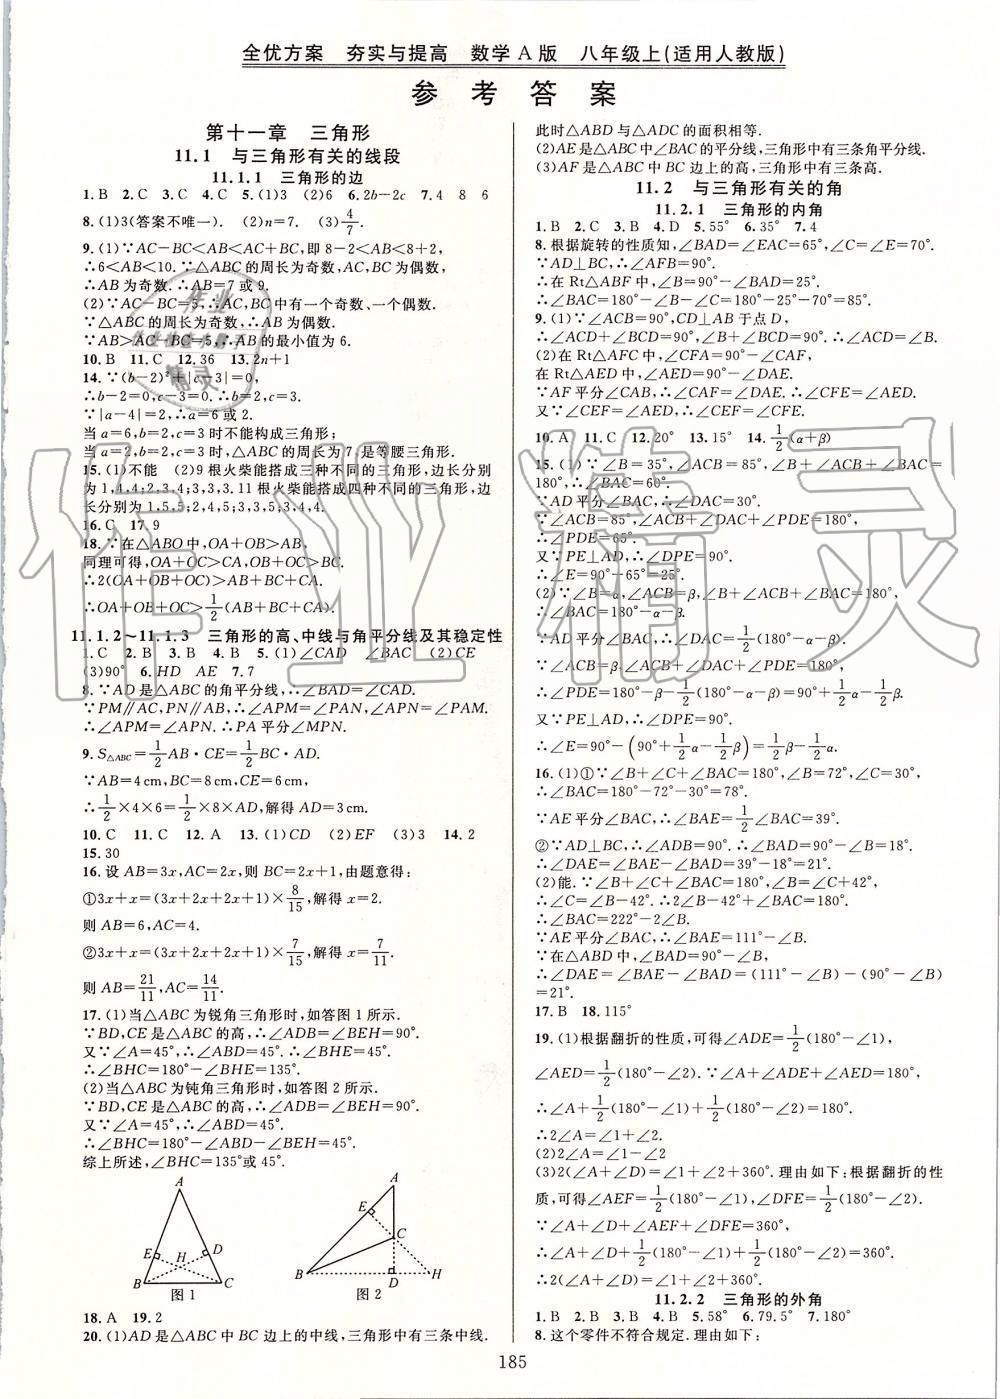 全优方案　夯实与提高　数学A版　八年级上(适用人教版)
参考答案
第十一章　三角形
11.1　与三角形有关的线段
11.1.1　三角形的边
1.B　2.C　3.C　4.C　5.(1)3　(2)6　6.2b－2c　7.4　8　6
8.(1)3(答案不唯一).　(2)n=7.　(3)4/7.
9.(1)∵AC－BC<AB<AC+BC,即8－2<AB<8+2,
∴6<AB<10.∵△ABC的周长为奇数,AC,BC为偶数,
∴AB为奇数.∴AB=7或9.
(2)∵AC－BC=5,∴AC,BC中有一个奇数、一个偶数.
∵△ABC的周长为奇数,∴AB为偶数.
∵AB>AC－BC=5,∴AB的最小值为6.
10.B　11.C　12.36　13.2n+1
14.∵(b－2)²+|c－3|=0,
∴b－2=0,c－3=0.∴b=2,c=3.
∵|a－4|=2.∴a=6或2.
当a=6,b=2,c=3时不能构成三角形;
当a=2,b=2,c=3时,△ABC的周长为7,是等腰三角形.
15.(1)不能　(2)9根火柴能搭成三种不同的三角形,边长分别
为1,4,4;2,3,4;3,3,3.11根火柴能搭成四种不同的三角形,边
长分别为1,5,5;2,4,5;3,3,5;3,4,4.
16.C　17.9
18.∵在△ABO中,OA+OB>AB.
同理可得,OA+OC>CA,OB+OC>BC.
∴2(OA+OB+OC)>AB+BC+CA.
∴OA+OB+OC>1/2(AB+BC+CA).
11.1.2～11.1.3　三角形的高、中线与角平分线及其稳定性
1.C　2.B　3.B　4.B　5.(1)∠CAD　∠BAC　(2)CE
(3)90°　6.HD　AE　7.7
8.∵AD是△ABC的角平分线,∴∠BAD=∠CAD.
∵PM∥AC,PN∥AB,∴∠APM=∠PAN,∠APN=∠PAM.
∴∠APM=∠APN.∴PA平分∠MPN.
9.S△ABC=1/2AB·CE=1/2BC·AD.
∵AB=4cm,BC=8cm,CE=6cm,
∴1/2×4×6=1/2×8×AD,解得AD=3cm.
10.C　11.C　12.A　13.(1)CD　(2)EF　(3)3　14.2
15.30
16.设AB=3x,AC=2x,则BC=2x+1,由题意得:
①3x+x=(3x+2x+2x+1)×8/15,解得x=2.
则AB=6,AC=4.
②3x+x=(3x+2x+2x+1)×7/15,解得x=7/11.
则AB=21/11,AC=14/11.
17.(1)当△ABC为锐角三角形时,如答图1所示.
∵BD,CE是△ABC的高,∴∠ADB=∠BEH=90°.
又∵∠A=45°,∴∠ABD=45°.∴∠BHE=45°.
∴∠BHC=180°－∠BHE=135°.
(2)当△ABC为钝角三角形时,如答图2所示.
∵BD,CE是△ABC的高,∴∠ADB=∠BEH=90°.
又∵∠A=45°,∴∠ABD=45°.
∴∠BHC=180°－∠ABD－∠BEH=45°.
综上所述,∠BHC=135°或45°.
A
E
H
D
B
C
图1
A
E
C
B
D
H
图2
18.A　19.2
20.(1)AD是△ABC中BC边上的中线,三角形中有三条中线.
此时△ABD与△ADC的面积相等.
(2)AE是△ABC中∠BAC的平分线,三角形中有三条角平分线.
(3)AF是△ABC中BC边上的高,三角形中有三条高.
11.2　与三角形有关的角
11.2.1　三角形的内角
1.B　2.C　3.B　4.D　5.55°　6.35°　7.4
8.根据旋转的性质知,∠BAD=∠EAC=65°,∠C=∠E=70°.
∵AD⊥BC,∴∠AFB=90°.
∴在Rt△ABF中,∠B=90°－∠BAD=25°.
∴∠BAC=180°－∠B－∠C=180°－25°－70°=85°.
9.(1)∵∠ACB=90°,CD⊥AB于点D,
∴∠ACD+∠BCD=90°,∠B+∠BCD=90°.∴∠ACD=∠B.
(2)在Rt△AFC中,∠CFA=90°－∠CAF,
在Rt△AED中,∠AED=90°－∠DAE.
∵AF平分∠CAB,∴∠CAF=∠DAE.∴∠CFE=∠AED.
又∵∠CEF=∠AED,∴∠CEF=∠CFE.
10.A　11.C　12.20°　13.15°　14.1/2(α+β)
15.(1)∵∠B=35°,∠ACB=85°,∠B+∠ACB+∠BAC=
180°,∴∠BAC=60°.
∵AD平分∠BAC,∴∠DAC=30°.
∵∠ACB=85°,∠ACB+∠DAC+∠PDE=180°,
∴∠PDE=65°.
又∵PE⊥AD,∴∠DPE=90°.
∴∠E=90°－65°=25°.
(2)∵∠B=α,∠ACB=β,∠B+∠ACB+∠BAC=180°,
∴∠BAC=180°－α－β.
∵AD平分∠BAC,∴∠DAC=1/2(180°－α－β).
∵∠ACB=β,∠ACB+∠DAC+∠PDE=180°,
∴∠PDE=180°－β－1/2(180°－α－β)=90°+1/2α－1/2β.
又∵PE⊥AD,∴∠DPE=90°.
∴∠E=90°－(90°+1/2α－1/2β)=1/2β－1/2α.
16.(1)①∵∠B+∠C+∠BAC=180°,∠B=72°,∠C=30°,
∴∠BAC=180°－72°－30°=78°.
∵AE平分∠BAC,∴∠BAE=1/2∠BAC=39°.
②∵AD⊥BC,∴∠ADB=90°.∴∠BAD=90°－∠B=18°.
∴∠DAE=∠BAE－∠BAD=39°－18°=21°.
(2)能.∵∠B+∠C+∠BAC=180°,∠B=∠C+42°,
∴∠C=∠B－42°.∴2∠B－42°+∠BAC=180°.
∴∠BAC=222°－2∠B.
∵AE平分∠BAC,∴∠BAE=111°－∠B.
∵在△ABD中,∠BAD=90°－∠B,
∴∠DAE=∠BAE－∠BAD=(111°－∠B)－(90°－∠B)
=21°.
17.B　18.115°
19.(1)根据翻折的性质,可得∠ADE=1/2(180°－∠1),
∠AED=1/2(180°－∠2).∵∠A+∠ADE+∠AED=180°,
∴∠A+1/2(180°－∠1)+1/2(180°－∠2)=180°.
∴2∠A=∠1+∠2.
(2)2∠A=∠2
(3)2(∠A+∠D)=∠1+∠2+360°.理由如下:根据翻折的性
质,可得∠AEF=1/2(180°－∠1),∠DFE=1/2(180°－∠2).
∵∠A+∠D+∠AEF+∠DFE=360°,
∴∠A+∠D+1/2(180°－∠1)+1/2(180°－∠2)=360°.
∴2(∠A+∠D)=∠1+∠2+360°.
11.2.2　三角形的外角
1.B　2.B　3.B　4.B　5.58°　6.79.5°　7.180°
8.这个零件不符合规定.理由如下:
185
作业精灵